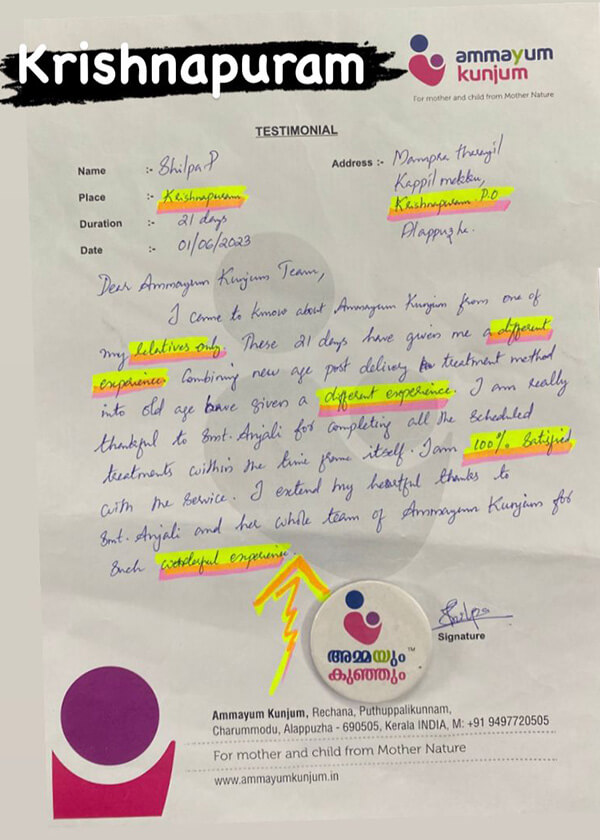 Krishnapuram
ammayum
kunjum
For mother and child from Mother Nature
TESTIMONIAL
Name :- Shilpa P
Place :- Krishnapuram
Duration :- 21 days
Date :- 01/06/2023
Address :-
Kappil mekku,
Krishnapuram P.O
Alappuzha.
Dear Ammayum Kunjum Team,
I came to know about Ammayum Kunjum from one of
my relatives only. These 21 days have given me a different
experience. Combining new age post delivery treatment method
into old age have given a different experience. I am really
thankful to Smt. Anjali for completing all the scheduled
treatments within the time frame itself. I am 100% satisfied
with the service. I extend my heartful thanks to
Smt. Anjali and her whole team of Ammayum Kunjum for
such wonderful experience.
അമ്മയും
കുഞ്ഞും
TM
Shilpa
Signature
Ammayum Kunjum, Rechana, Puthuppalikunnam,
Charummodu, Alappuzha - 690505, Kerala INDIA, M: +91 9497720505
For mother and child from Mother Nature
www.ammayumkunjum.in